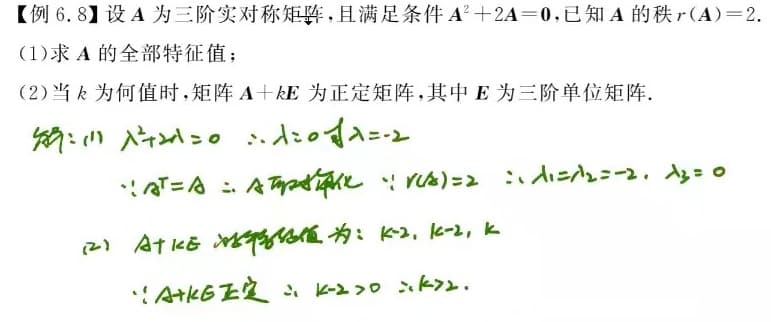 【例 6.8】设 A 为三阶实对称矩阵,且满足条件 A²+2A=0,已知 A 的秩 r(A)=2.
(1)求 A 的全部特征值;
(2)当 k 为何值时,矩阵 A+kE 为正定矩阵,其中 E 为三阶单位矩阵.
解:(1) λ²+2λ=0 ∴λ=0或λ=-2
∵A^T=A ∴A可对角化 ∵r(A)=2 ∴λ₁=λ₂=-2, λ₃=0
(2) A+kE 的特征值为: k-2, k-2, k
∵A+kE正定 ∴ k-2>0 ∴k>2.